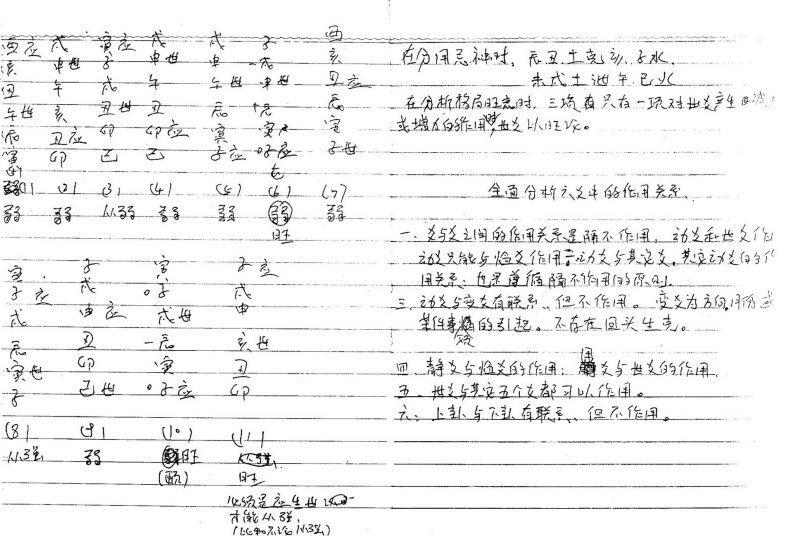 酉应 戌 寅应 戌 戌 子 酉
亥 申世 子 申世 申 戌 亥
丑 午 戌 午 午世 申世 丑应
午世 亥 丑世 丑 辰 辰
辰 丑应 卯 卯应 寅 寅 寅
寅 卯 巳 巳 子应 子应 子世
(1) (2) (3) (4) (5) (6) (7)
弱 弱 从弱 弱 弱 弱 弱
旺
寅 子 寅 子应
子应 戌 子 戌
戌 申应 戌世 申
辰 丑 辰 亥世
寅世 卯 寅 丑
子 巳世 子应 卯
(8) (9) (10) (11)
从强 弱 旺 从强
旺
必须是应生世
才能从强,
(比和不论从强)
在分用忌神时, 辰丑土克亥、子水
未戌土泄午、巳火
在分析格局旺衰时, 三项有只有一项对世爻产生
或增力的作用时, 世爻以旺
全面分析六爻中的作用关系.
一、爻与爻之间的作用关系是隔不作用, 动爻和世爻作
动爻只能与临爻作用 动爻与其它爻,其它动爻的作
用关系: 也是遵循隔不作用的原则.
三、动爻与变爻有联系、但不作用。变爻为方向,
某件事情的引起。不存在回头生克。
四、静爻与临爻的作用: 爻与世爻的作用
五、世爻与其它五个爻都可以作用。
六: 上卦与下卦有联系、但不作用。